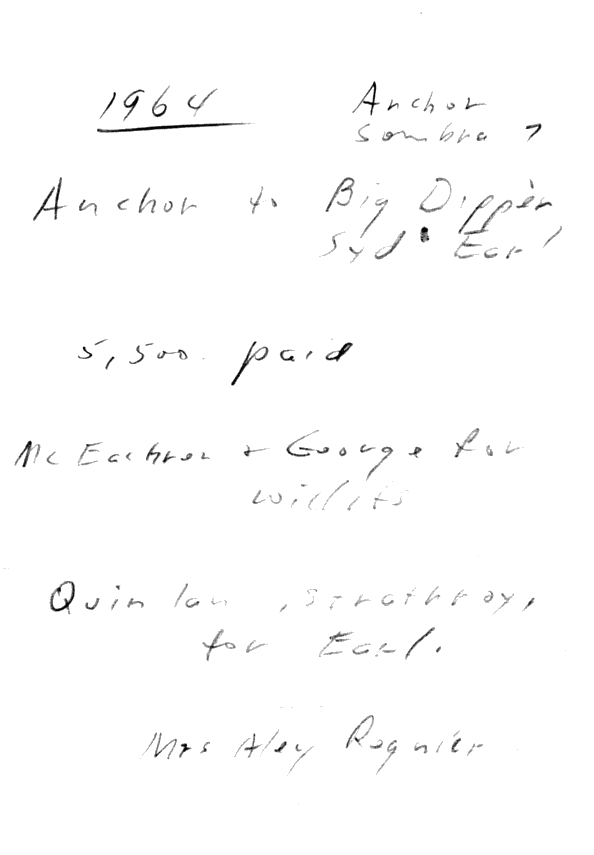 1964
Anchor
Sombra ?
Anchor to Big Dipper
Syd Earl
5,500. paid
McEachren + George for
Willits
Quinlan, Strathroy,
for Earl.
Mrs Aley Regnier